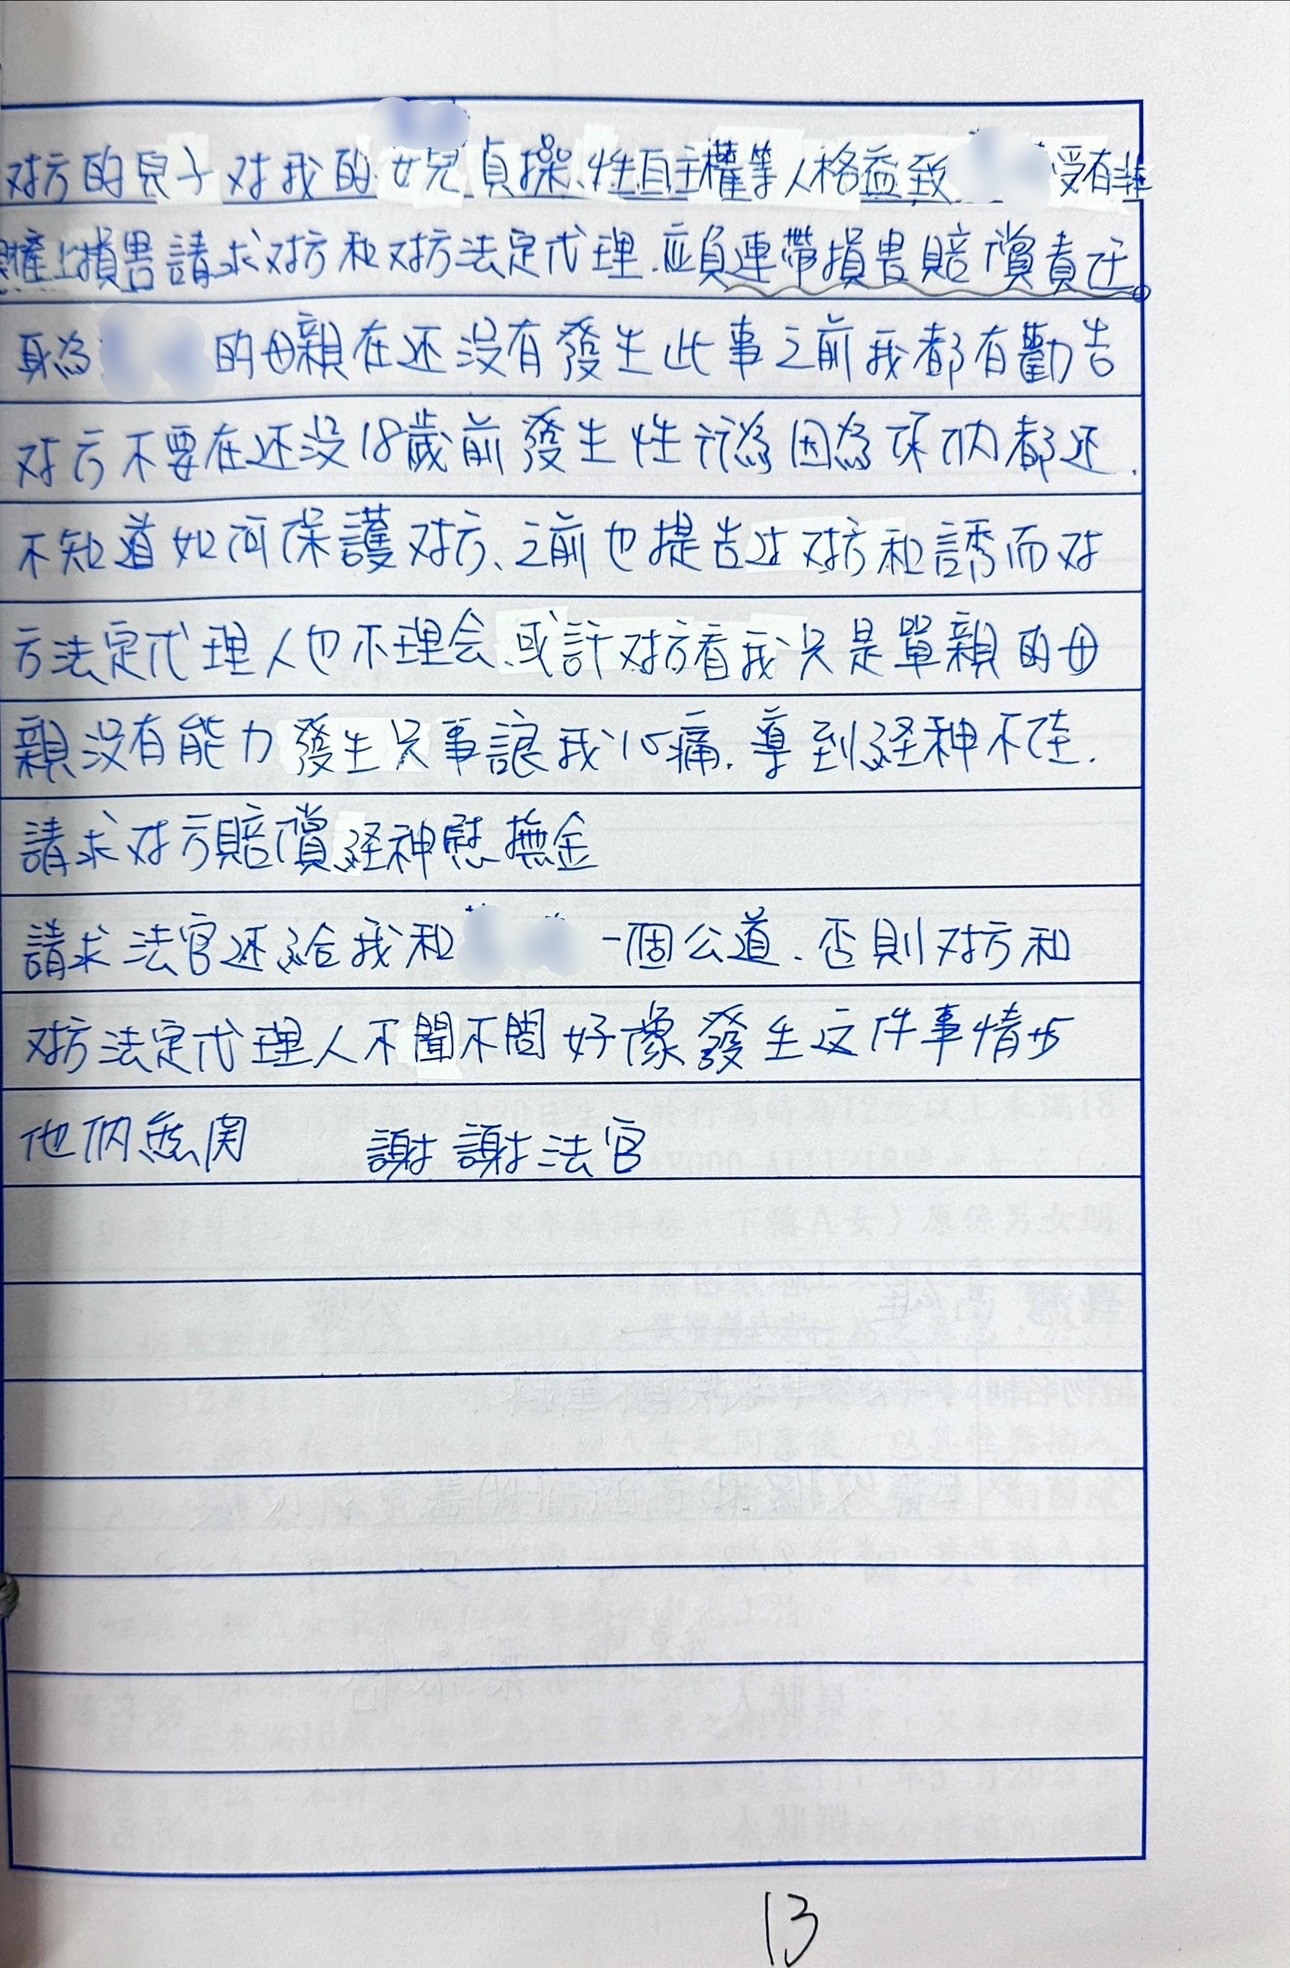 对方的兒子对我的女兒貞操、性自主權等人格益致受有非
財產上損害請求对方和对方法定代理.應負連帶損害賠償責任。
身為的母親在还沒有發生此事之前我都有勸告
对方不要在还没18歲前發生性行為因為你們都还.
不知道如何保護对方、之前也提告过对方和誘而对
方法定代理人也不理会、或許对方看我只是單親的母
親沒有能力發生只事讓我心痛.導到経神不佳.
請求对方賠償経神慰撫金
請求法官还給我和一個公道、否則对方和
对方法定代理人不聞不問好像發生这件事情与
他們無関 謝謝法官
13